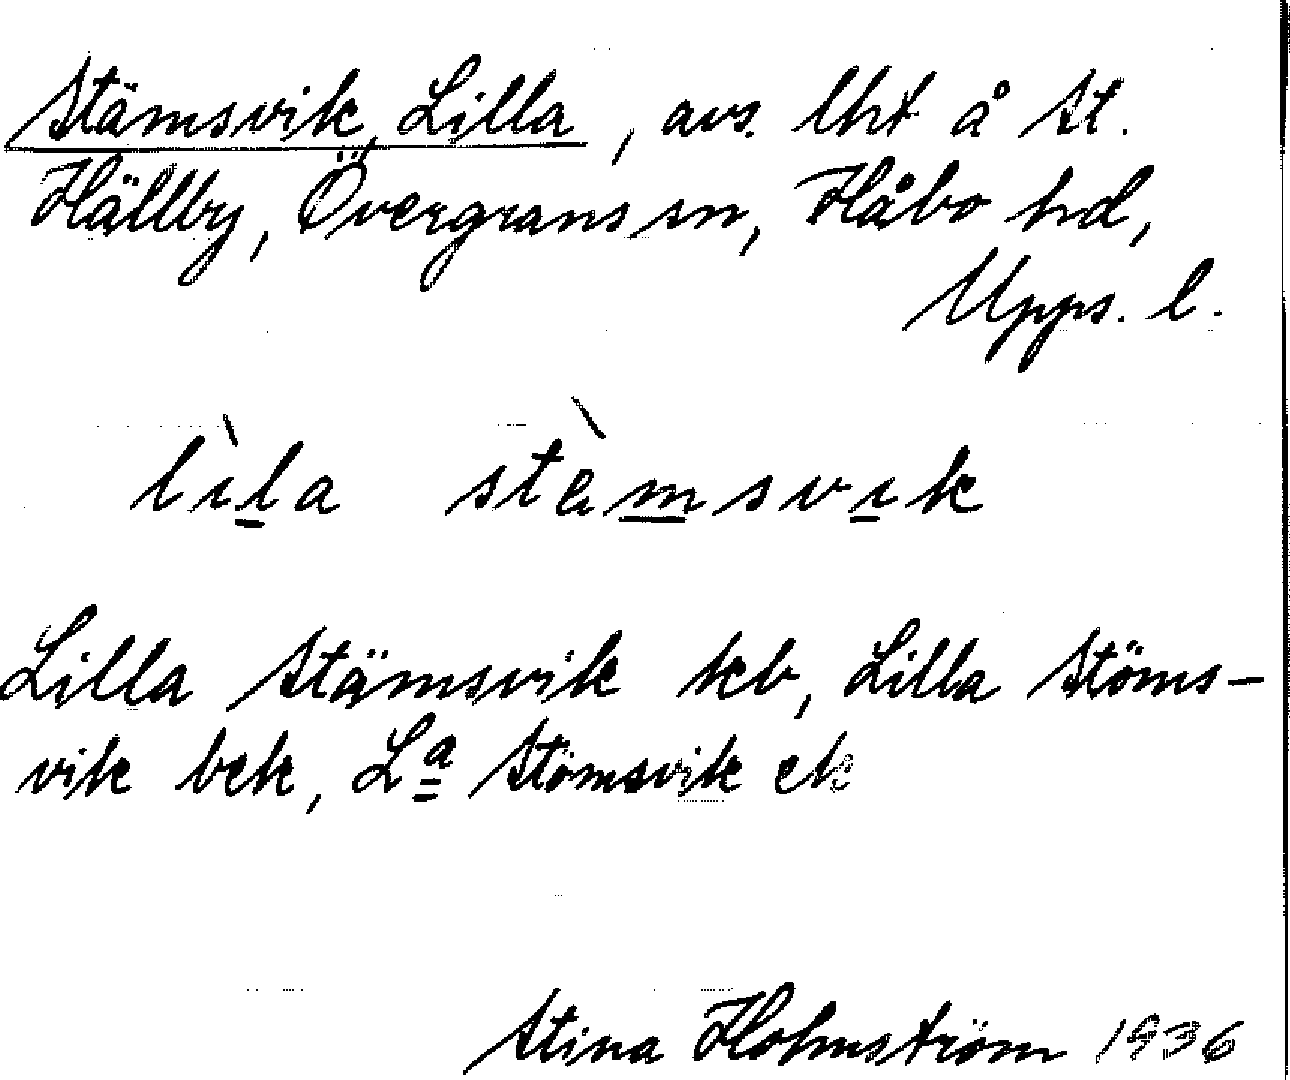 Stämsvik, Lilla, avs. lht å St.
Hällby, Övergrans sn, Håbo hd,
Upps. l.
lìla stèmsvik
Lilla Stämsvik kb, Lilla Stöms-
vik bek, La Stömsvik ek
Stina Holmström 1936